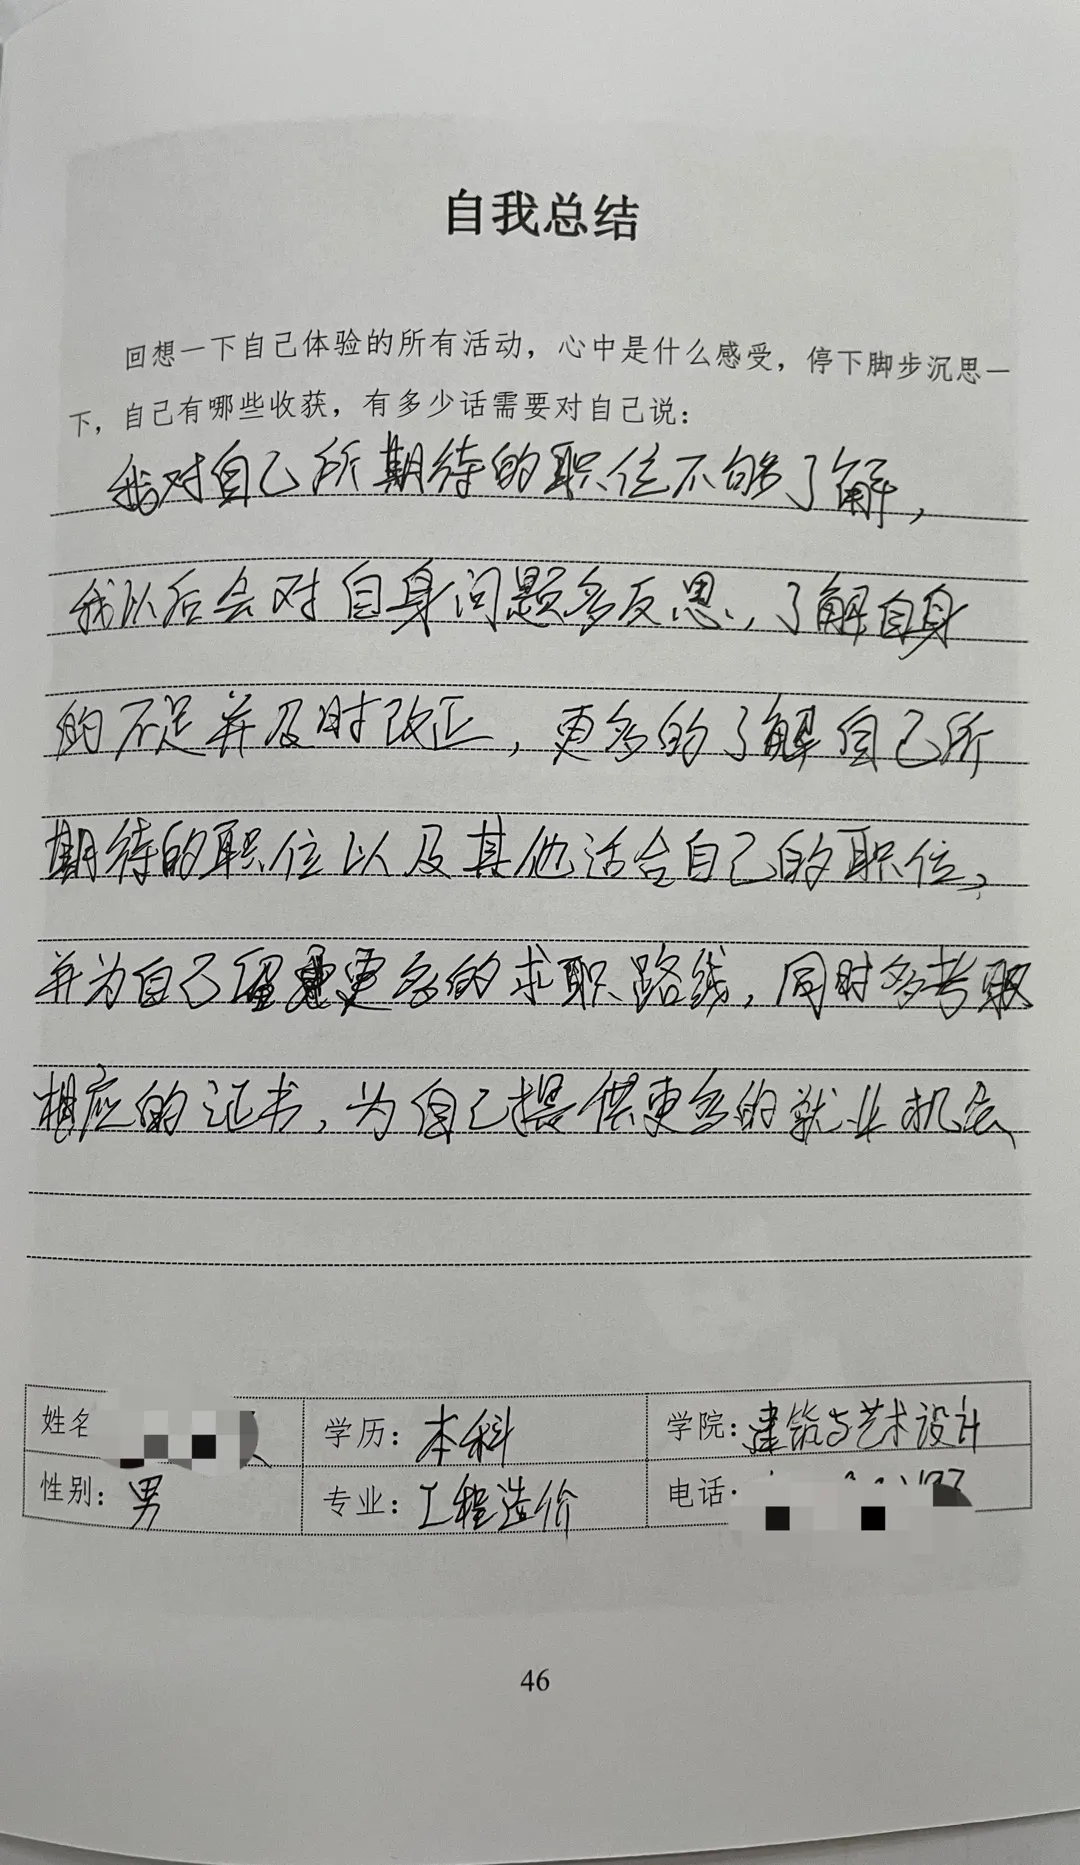 自我总结
回想一下自己体验的所有活动，心中是什么感受，停下脚步沉思一
下，自己有哪些收获，有多少话需要对自己说：
我对自己所期待的职位不够了解，
我以后会对自身问题多反思，了解自身
的不足并及时改正，更多的了解自己所
期待的职位以及其他适合自己的职位，
并为自己留更多的求职路线，同时多考取
相应的证书，为自己提供更多的就业机会
姓名 学历：本科 学院：建筑与艺术设计
性别：男 专业：工程造价 电话
46